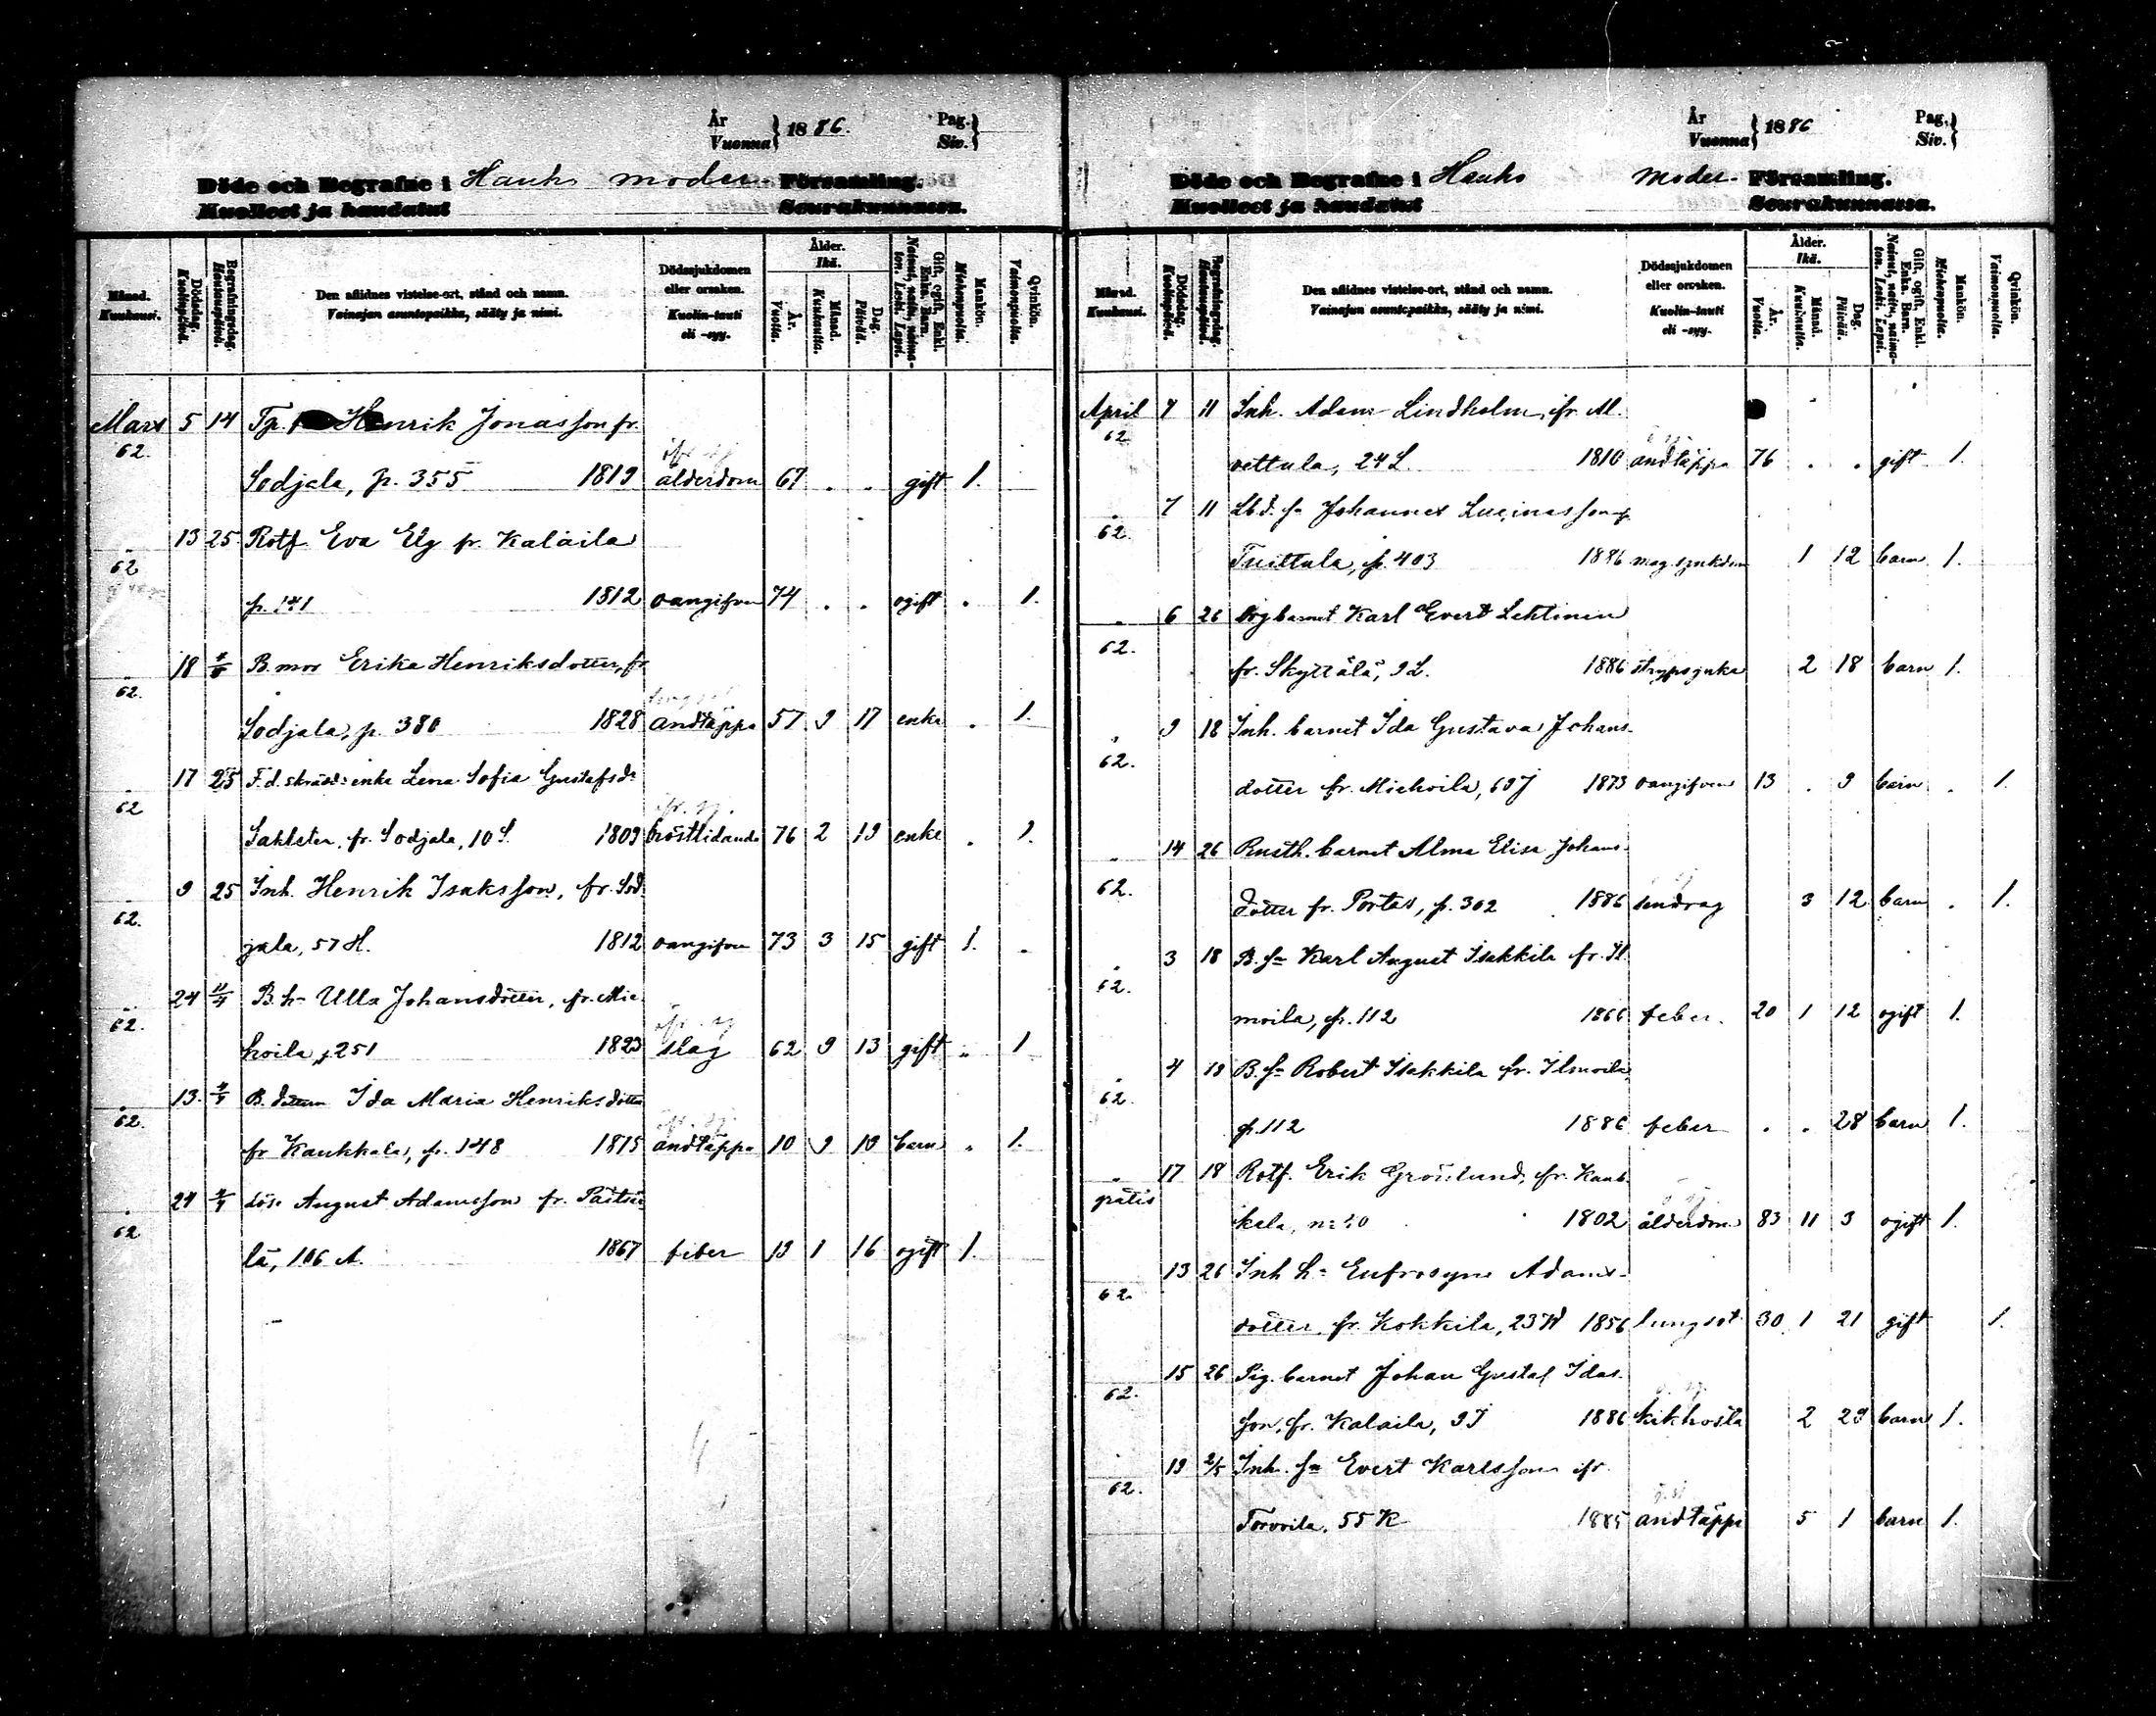 År
Vuonna } 1886.
Pag.
Siv. }
Döde och Begrafne i Hauho moder- Församling.
Kuolleet ja haudatut Seurakunnassa.
Månad. Kuukausi.
Dödsdag. Kuolinpäivä.
Begrafningsdag. Hautauspäivä.
Den aflidnes vistelse-ort, stånd och namn.
Vainajan asuntopaikka, sääty ja nimi.
Dödssjukdomen eller orsaken.
Kuolin-tauti eli -syy.
Ålder. Ikä.
År. Vuotta.
Månad. Kuukautta.
Dag. Päivää.
Gift, ogift, Enkl. Enka. Barn.
Nainut, naitu, naimaton. Leski. Lapsi.
Mankön. Miehenpuolta.
Qvinkön. Vaimonpuolta.
Mars 5 14 Tp. Henrik Jonasson fr.
62. Sodjala, p. 355 1819 ålderdom 67 . . gift 1.
13 25 Rotf. Eva Elg fr. Kalaila
62 p. 141 1812 oangifven 74 . . ogift . 1.
18 B. mor Erika Henriksdotter, fr
62. Sodjala, p. 380 1828 andtäppa 57 9 17 enka . 1.
17 25 F. d. enka Lena Sofia Gustafsdr
62 fr. Sodjala, 10 S. 1809 bröstlidande 76 2 19 enka . 1.
9 25 Inh. Henrik Isaksson, fr. Sod-
62. jala, 57 H. 1812 oangifven 73 3 15 gift 1. .
24 B. h- Ulla Johansdotter, fr. Mie-
62. hoila, p. 251 1823 slag 62 9 13 gift 1
13. B. dottern Ida Maria Henriksdotter
62. fr Kaukkala, p. 148 1875 andtäppa 10 9 19 barn . 1.
24 August Adamsson fr. Paitsi-
62 lä, 106 A. 1867 feber 19 1 16 ogift 1.
År
Vuonna } 1886
Pag.
Siv. }
Döde och Begrafne i Hauho moder- Församling.
Kuolleet ja haudatut Seurakunnassa.
Månad. Kuukausi.
Dödsdag. Kuolinpäivä.
Begrafningsdag. Hautauspäivä.
Den aflidnes vistelse-ort, stånd och namn.
Vainajan asuntopaikka, sääty ja nimi.
Dödssjukdomen eller orsaken.
Kuolin-tauti eli -syy.
Ålder. Ikä.
År. Vuotta.
Månad. Kuukautta.
Dag. Päivää.
Gift, ogift, Enkl. Enka. Barn.
Nainut, naitu, naimaton. Leski. Lapsi.
Mankön. Miehenpuolta.
Qvinkön. Vaimonpuolta.
April 7 11 Inh. Adam Lindholm, fr. Al-
62 vettula, 24 L. 1810 andtäppa 76 . . gift 1.
7 11 Johannes
62. Tuittula, p. 403 1886 mag sjukdom 1 12 barn 1.
6 26 Karl Evert Lehtinen
62. fr. Skyttälä, 9 L. 1886 strypsjuka 2 18 barn 1.
9 18 Inh. barnet Ida Gustava Johans-
62. dotter fr. Miehoila, 69 J 1873 oangifven 13 . 9 barn . 1.
14 26 Rusth. barnet Alma Elisa Johans-
62. dotter fr. Portas, p. 302 1886 sendrag 3 12 barn . 1.
3 18 B. sn Karl August Isakkila fr. Il-
62. moila, p. 112 1866 feber. 20 1 12 ogift 1.
4 18 B. sn Robert Isakkila fr. Ilmoila,
62. p. 112 1886 feber . . 28 barn 1.
17 18 Rotf. Erik Grönlund, fr. Kauk-
gratis kala, 1802 ålderdom 83 11 3 ogift 1.
13 26 Inh h- Eufrosyne Adams-
62. dotter, fr. Kokkila, 23 H 1856 lungsot 30 1 21 gift 1.
15 26 Pig. barnet Johan Gustaf Idas-
62. son, fr. Kalaila, 9 I 1886 kikhosta 2 29 barn 1.
19 2/5 Inh. sn Evert Karlsson fr.
62. Torvoila, 55 K 1885 andtäppa 5 1 barn 1.